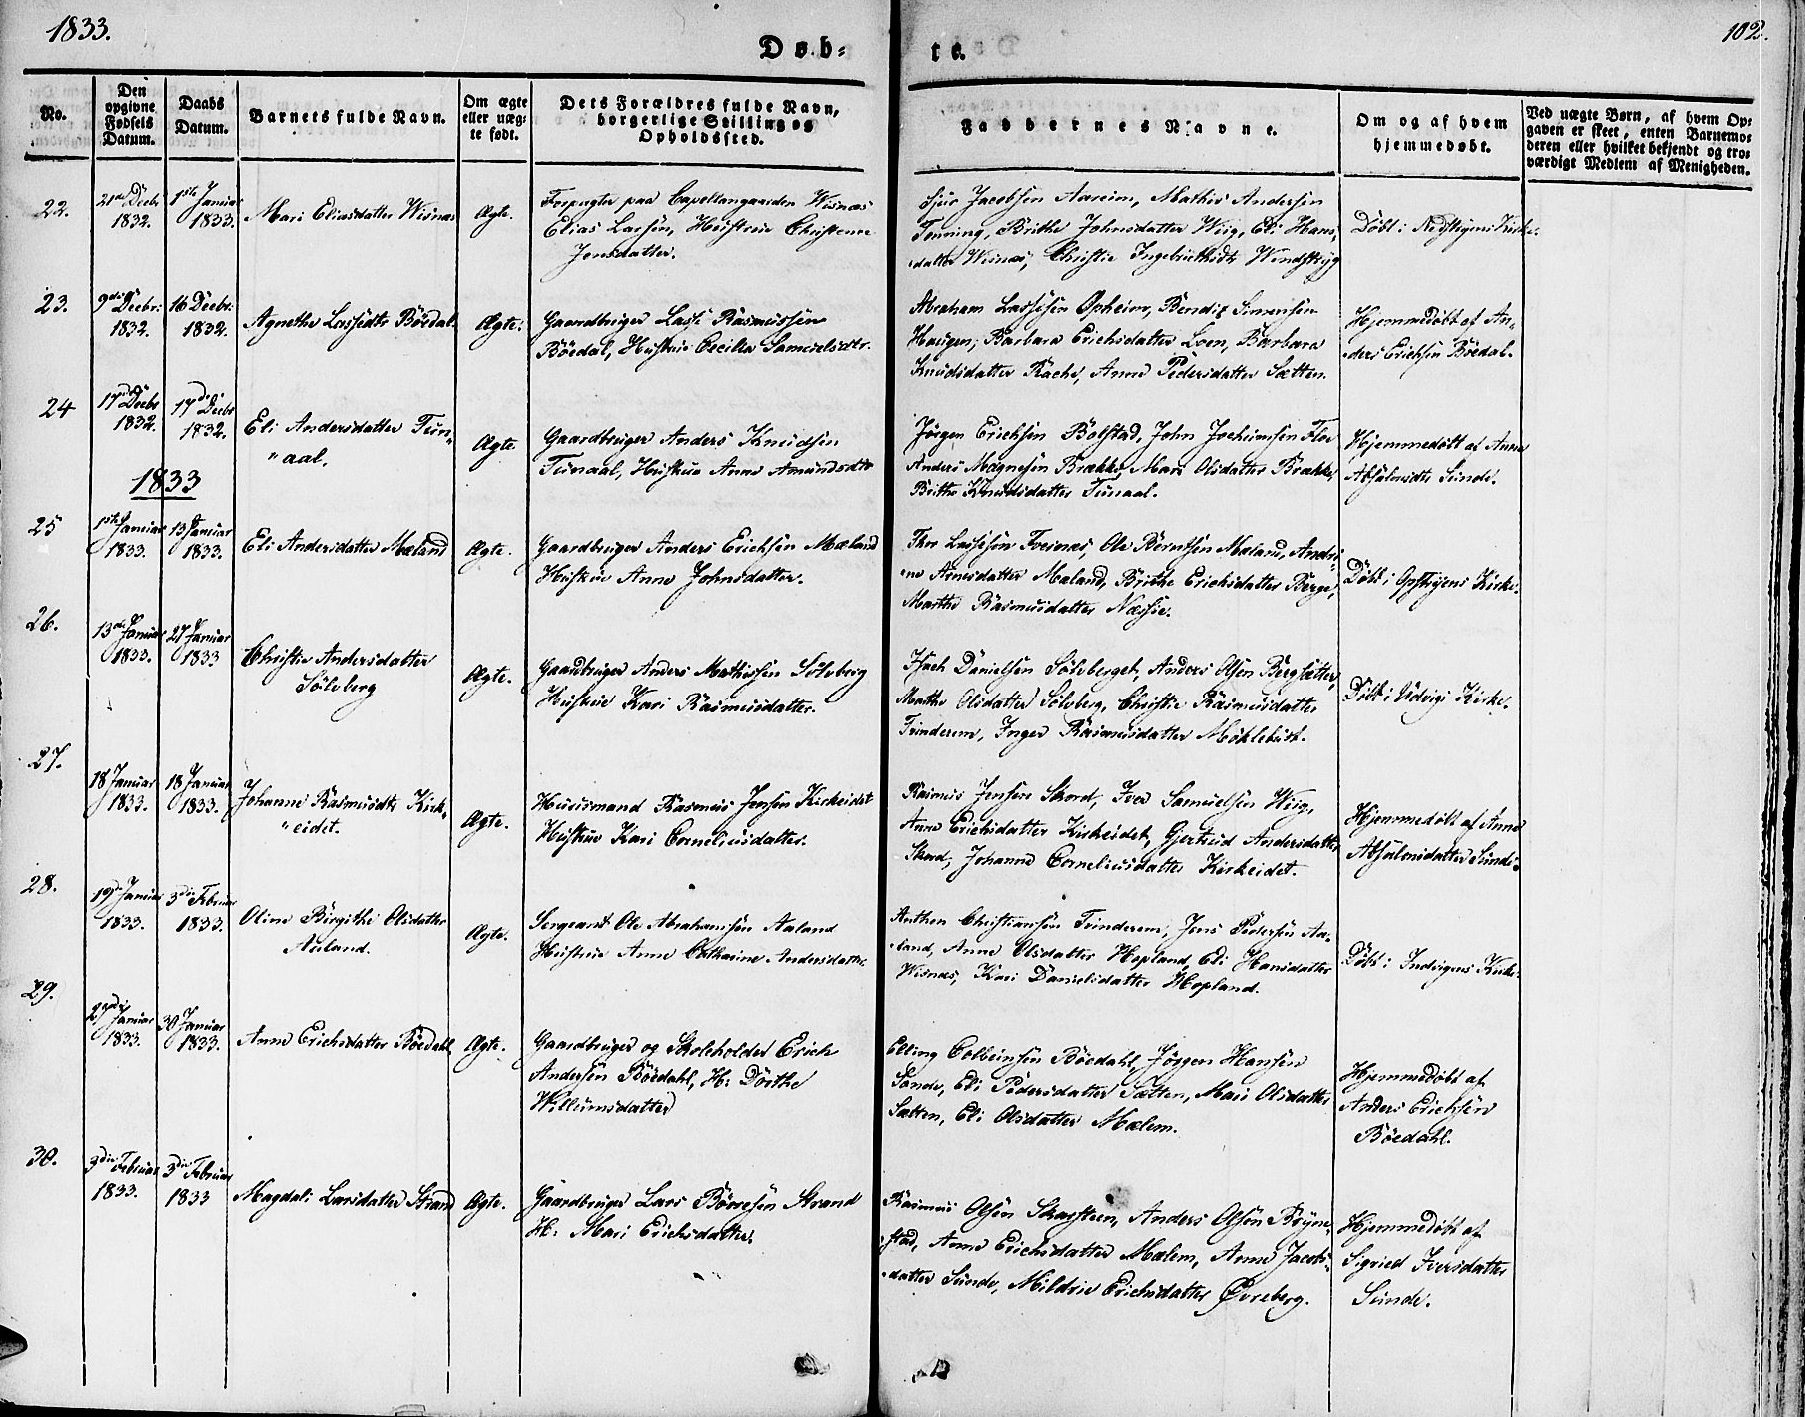 1833.
102.
Døb=
te.
No.
Den
opgivne
Fødsels
Datum.
Daabs
Datum.
Barnets fulde Navn.
Om ægte
eller uæg=
te født.
Dets Forældres fulde Navn,
borgerlige Stilling og
Opholdssted.
Faddernes Navne.
Om og af hvem
hjemmedøbt.
Ved uægte Børn, af hvem Op=
gaven er skeet, enten Barnemo=
deren eller hvilket bekjendt og tro=
værdigt Medlem af Menigheden.
22.
21de Decbr
1832.
1ste Januar
1833.
Mari Eliasdatter Wisnæs
Ægte.
Forpagter paa Capellangaarden Wisnæs
Elias Larsen, Hustrue Christense
Jensdatter.
Sjur Jacobsen Aareim, Mathis Andersen
Tenning, Brithe Johnsdatter Wiig, Eli Hans-
datter Wisnæs, Christie Ingebrethsdtr Windstryg
Døbt i Nedstryens Kirke.
23.
9de Decbr:
1832.
16 Decbr:
1832.
Agnethe Lassedtr Böedal.
Ægte.
Gaardbruger Lasse Rasmussen
Böedal, Hustrue Cecilia Samuelsdtr.
Abraham Lassesen Opheim, Bendix Simensen
Haugen, Barbara Erichsdatter Loen, Barbara
Knudsdatter Rache, Anne Pedersdatter Sætten.
Hjemmedöbt af An-
ders Erichsen Böedal.
24
17de Decbr
1832.
17de Decbr
1832.
Eli Andersdatter Tun-
"aal.
Ægte
Gaardbruger Anders Knudsen
Tunaal, Hustrue Anne Amundsdtr
Jörgen Erichsen Bolstad, John Jochumsen Flor
Anders Magnesen Brække, Mari Olsdatter Brække,
Brithe Knudsdatter Tunaal.
Hjemmedöbt af Anne
Absalonsdtr Sunde.
1833
25
1ste Januar
1833.
13 Januar
1833.
Eli Andersdatter Mæland
Ægte.
Gaardbruger Anders Erichsen Mæland
Hustrue Anne Johnsdatter.
Thor Lassesen Tveinæs, Ole Berntsen Mæland, Andri-
ne Arnesdatter Mæland, Brithe Erichsdatter Berge,
Marthe Rasmusdatter Næssie.
Döbt i Opstryens Kirke.
26.
13de Januar
1833.
27 Januar
1833
Christie Andersdatter
Sölvberg
Ægte.
Gaardbruger Anders Mathissen Sölvberg
Hustrue Kari Rasmusdatter.
Isach Danielsen Sölvberget, Anders Olsen Bergsætter,
Marthe Olsdatter Sölvberg, Christie Rasmusdatter
Tvinderem, Inger Rasmusdatter Möklebust.
Döbt i Udvigs Kirke.
27.
18 Januar
1833.
18 Januar
1833.
Johanne Rasmusdtr Kirk-
"eidet.
Ægte.
Huusmand Rasmus Jensen Kirkeidet
Hustrue Kari Corneliusdatter.
Rasmus Jensen Skord, Iver Samuelsen Wiig,
Anne Erichsdatter Kirkeidet, Gjertrud Andersdatter
Skord, Johanne Corneliusdatter Kirkeidet.
Hjemmedöbt af Anne
Absalonsdatter Sunde.
28.
19de Januar
1833.
3die Februar
1833.
Oline Birgithe Olsdatter
Aaland.
Ægte.
Sergeant Ole Abrahamsen Aaland
Hustrue Anne Cathrine Andersdatter
Anthon Christiansen Tvinderem, Jens Pedersen Aa-
land, Anne Olsdatter Hopland, Eli Hansdatter
Wisnæs, Kari Danielsdatter Hopland.
Döbt i Indvigens Kirke.
29.
29de Januar
1833.
30 Januar
1833.
Anne Erichsdatter Böedahl
Ægte.
Gaardbruger og Skoleholder Erich
Andersen Böedahl, H: Dorthe
Willumsdatter
Elling Colbeinsen Böedahl, Jörgen Hansen
Sande, Eli Pedersdatter Sætten, Mari Olsdatter
Sætten, Eli Olsdatter Mælem.
Hjemmedöbt af
Anders Erichsen
Böedahl.
30.
3die Februar
1833.
3die Februar
1833
Magdali Larsdatter Strand
Ægte.
Gaardbruger Lars Börresen Strand
H: Mari Erichsdatter.
Rasmus Olsen Skarsteen, Anders Olsen Bryne-
stad, Anne Erichsdatter Mælem, Anne Jacobs-
datter Sunde, Mildrie Erichsdatter Øvreberg.
Hjemmedöbt af
Sigried Iversdatter
Sunde.